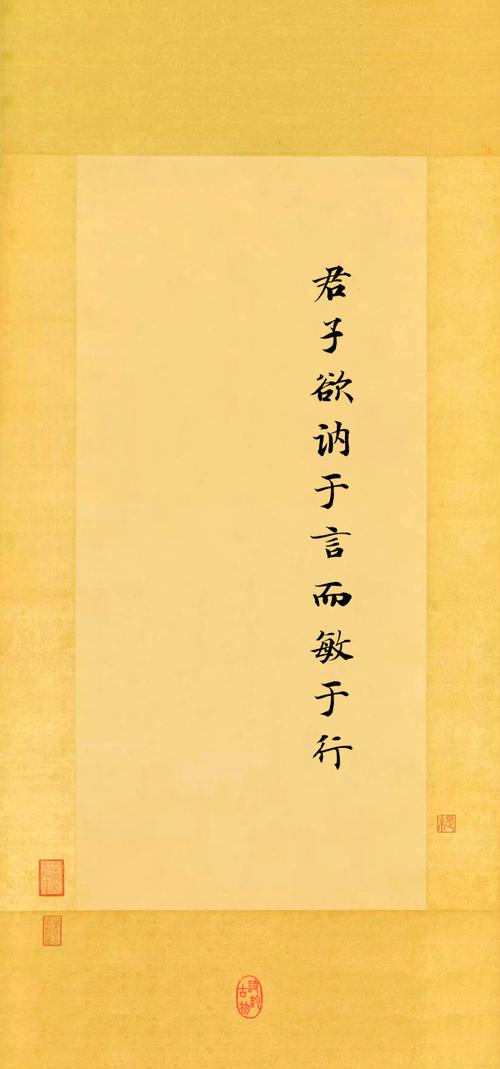 君子欲讷于言而敏于行
詩韵
古物